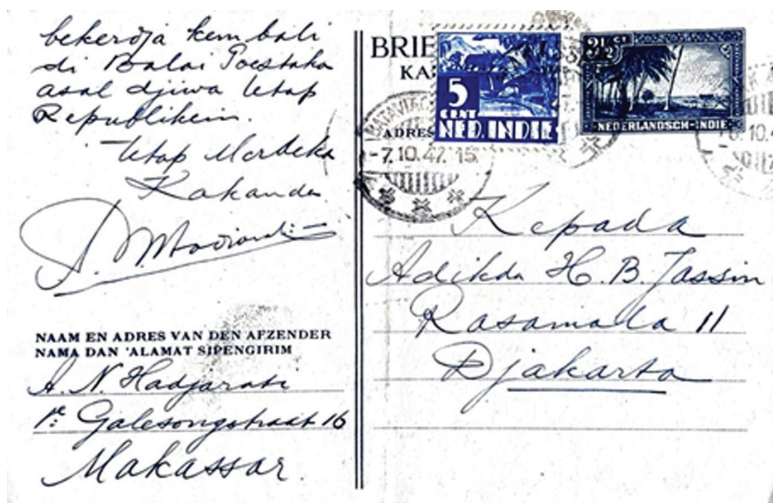 bekerdja kembali
di Balai Poestaka
asal djiwa tetap
Republikein.
tetap Merdeka
Kakanda
NAAM EN ADRES VAN DEN AFZENDER
NAMA DAN 'ALAMAT SIPENGIRIM
A. N. Hadjarati
1e Galesongstraat 16
Makassar
BRIE
KA
ADRES
5
CENT
NED. INDIE
3½ CT
NEDERLANDSCH-INDIE
BATAVIA
-7.10.47.15
Kepada
Adikda H. B. Jassin
Rasamala 11
Djakarta